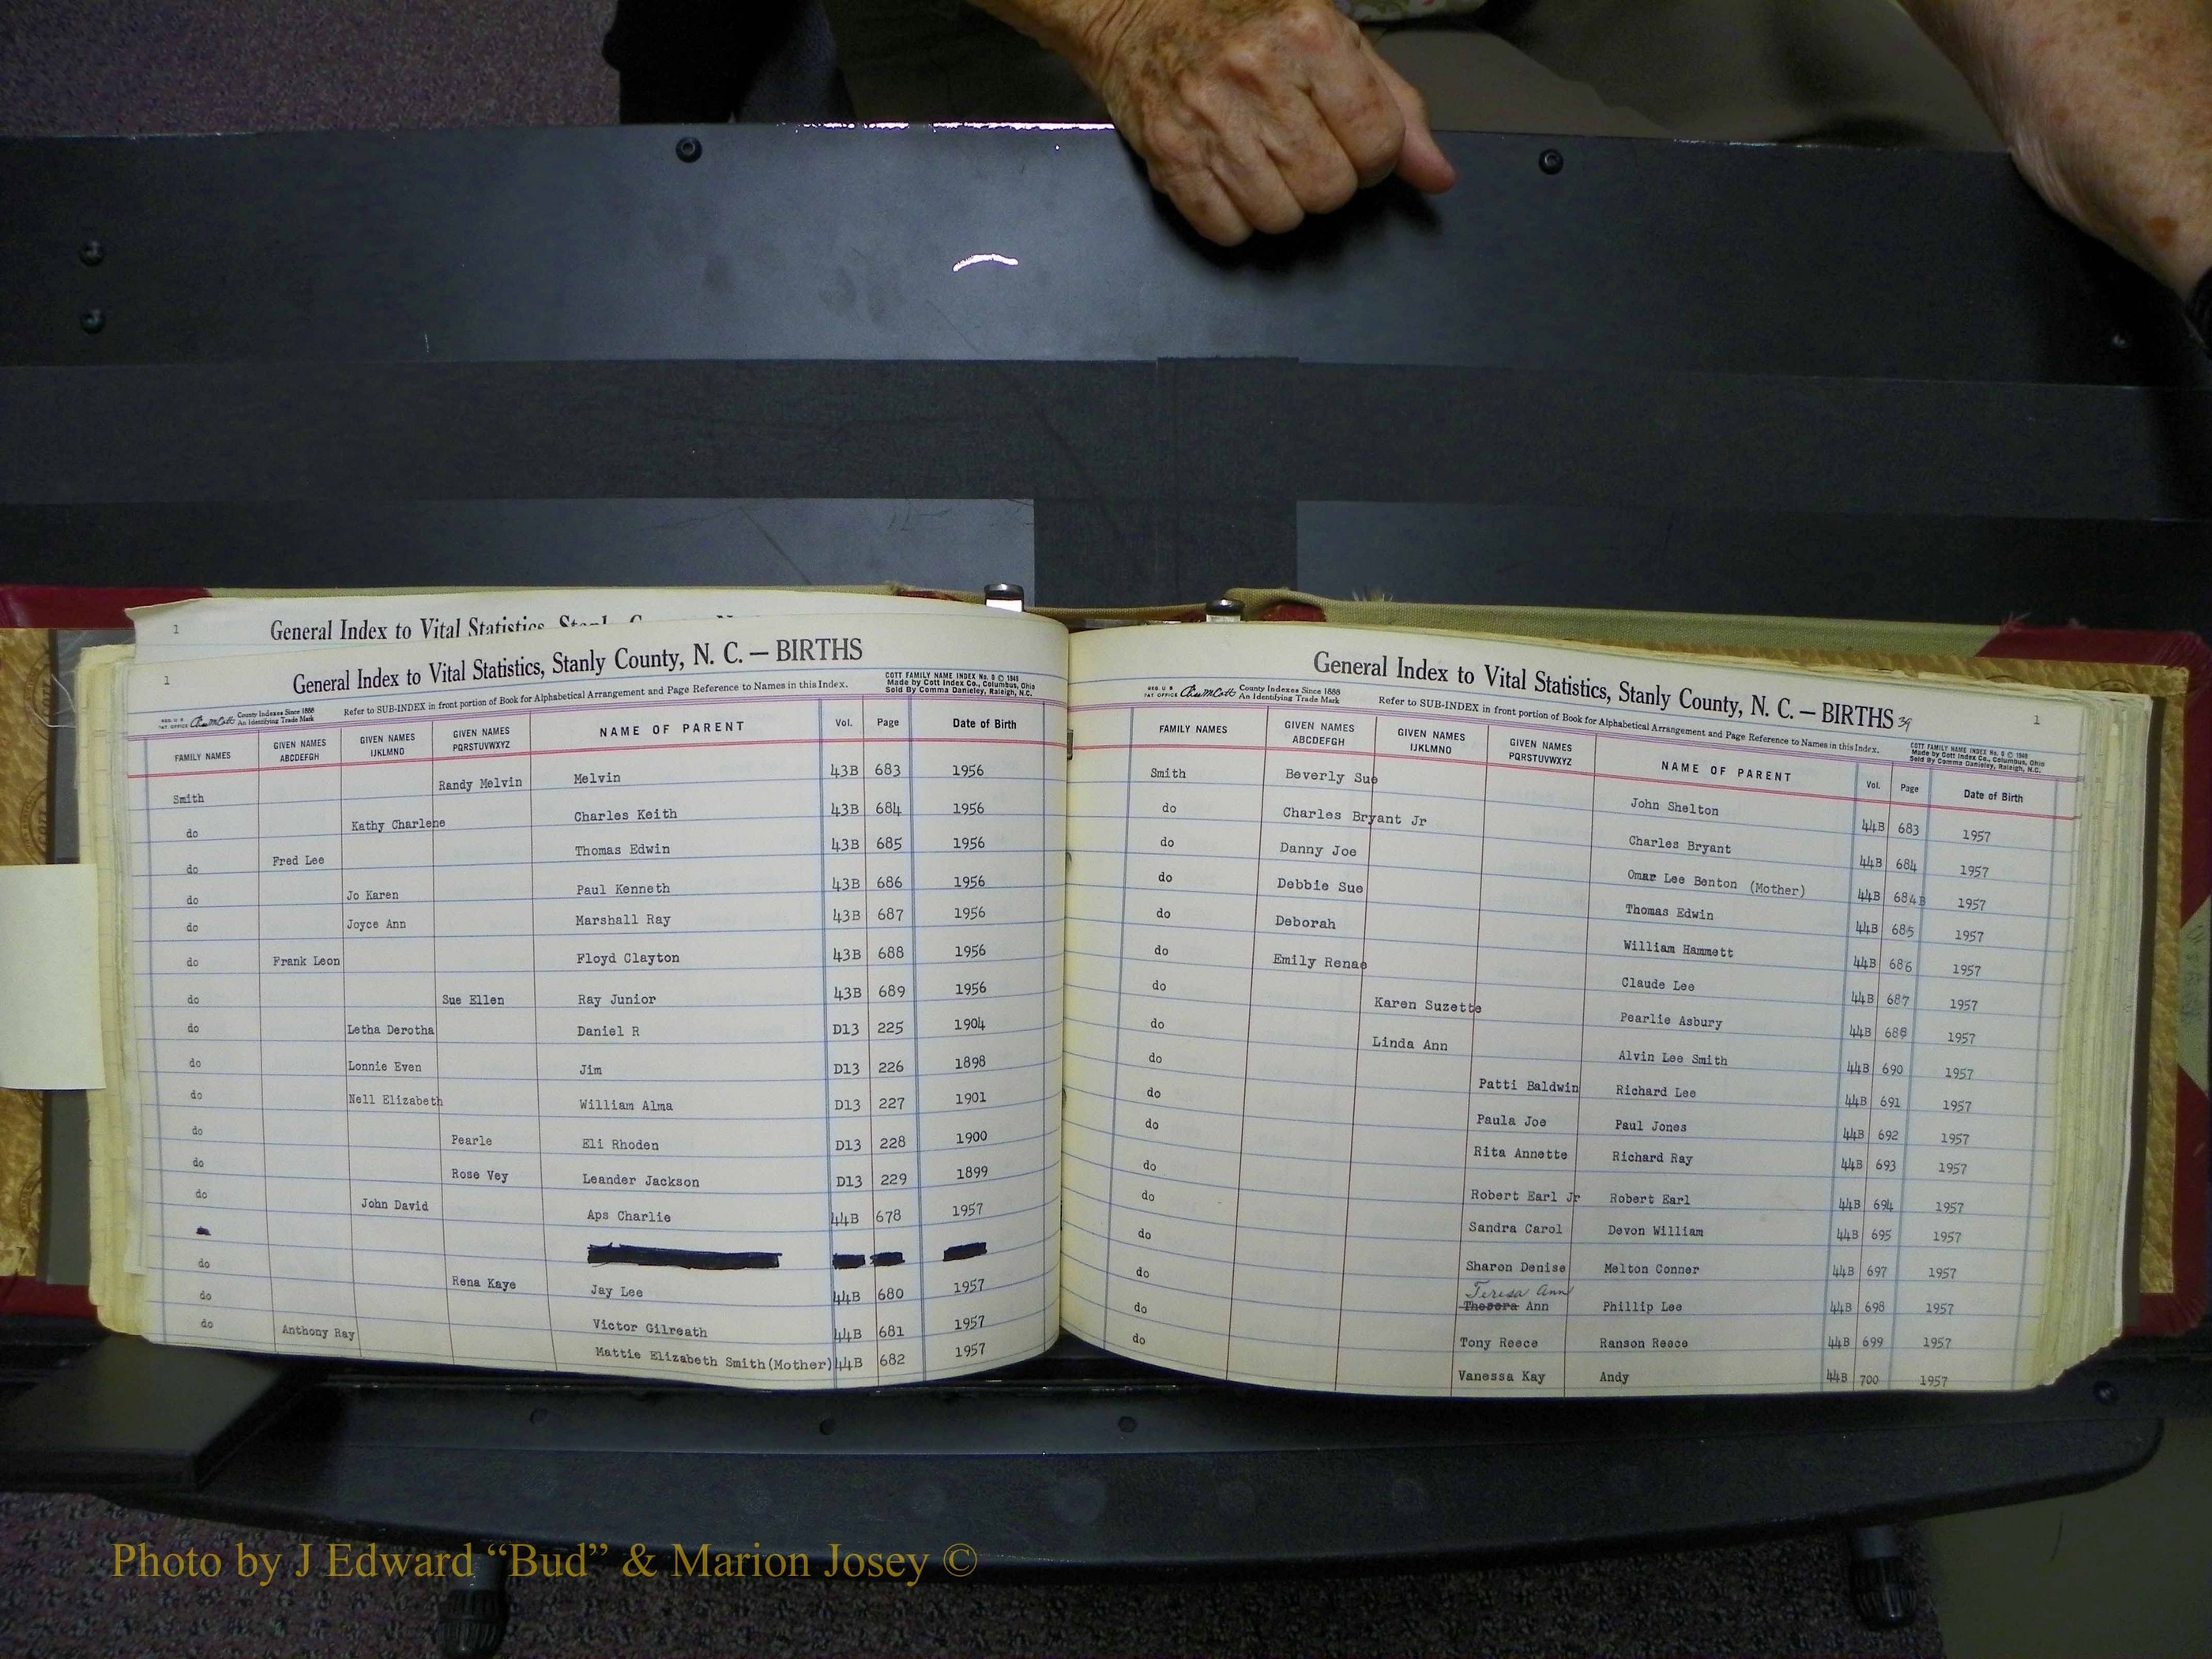 1 General Index to Vital Statistics, Stanly
1
General Index to Vital Statistics, Stanly County, N. C. — BIRTHS
COTT FAMILY NAME INDEX No. 8 © 1948
Made by Cott Index Co., Columbus, Ohio
Sold By Comma Danieley, Raleigh, N.C.
REG. U S PAT OFFICE County Indexes Since 1888
An Identifying Trade Mark
Refer to SUB-INDEX in front portion of Book for Alphabetical Arrangement and Page Reference to Names in this Index.
FAMILY NAMES GIVEN NAMES ABCDEFGH GIVEN NAMES IJKLMNO GIVEN NAMES PQRSTUVWXYZ NAME OF PARENT Vol. Page Date of Birth
Smith Randy Melvin Melvin 43B 683 1956
do Kathy Charlene Charles Keith 43B 684 1956
do Fred Lee Thomas Edwin 43B 685 1956
do Jo Karen Paul Kenneth 43B 686 1956
do Joyce Ann Marshall Ray 43B 687 1956
do Frank Leon Floyd Clayton 43B 688 1956
do Sue Ellen Ray Junior 43B 689 1956
do Letha Derotha Daniel R D13 225 1904
do Lonnie Even Jim D13 226 1898
do Nell Elizabeth William Alma D13 227 1901
do Pearle Eli Rhoden D13 228 1900
do Rose Vey Leander Jackson D13 229 1899
do John David Aps Charlie 44B 678 1957
do Rena Kaye Jay Lee 44B 680 1957
do Victor Gilreath 44B 681 1957
do Anthony Ray Mattie Elizabeth Smith(Mother) 44B 682 1957
General Index to Vital Statistics, Stanly County, N. C. — BIRTHS 39
1
REG. U S PAT OFFICE County Indexes Since 1888
An Identifying Trade Mark
Refer to SUB-INDEX in front portion of Book for Alphabetical Arrangement and Page Reference to Names in this Index.
COTT FAMILY NAME INDEX No. 8 © 1948
Made by Cott Index Co., Columbus, Ohio
Sold By Comma Danieley, Raleigh, N.C.
FAMILY NAMES GIVEN NAMES ABCDEFGH GIVEN NAMES IJKLMNO GIVEN NAMES PQRSTUVWXYZ NAME OF PARENT Vol. Page Date of Birth
Smith Beverly Sue John Shelton 44B 683 1957
do Charles Bryant Jr Charles Bryant 44B 684 1957
do Danny Joe Omar Lee Benton (Mother) 44B 684B 1957
do Debbie Sue Thomas Edwin 44B 685 1957
do Deborah William Hammett 44B 686 1957
do Emily Renae Claude Lee 44B 687 1957
do Karen Suzette Pearlie Asbury 44B 688 1957
do Linda Ann Alvin Lee Smith 44B 690 1957
do Patti Baldwin Richard Lee 44B 691 1957
do Paula Joe Paul Jones 44B 692 1957
do Rita Annette Richard Ray 44B 693 1957
do Robert Earl Jr Robert Earl 44B 694 1957
do Sandra Carol Devon William 44B 695 1957
do Sharon Denise Melton Conner 44B 697 1957
Teresa Ann
do Ann Phillip Lee 44B 698 1957
do Tony Reece Ranson Reece 44B 699 1957
do Vanessa Kay Andy 44B 700 1957
Photo by J Edward “Bud” & Marion Josey ©